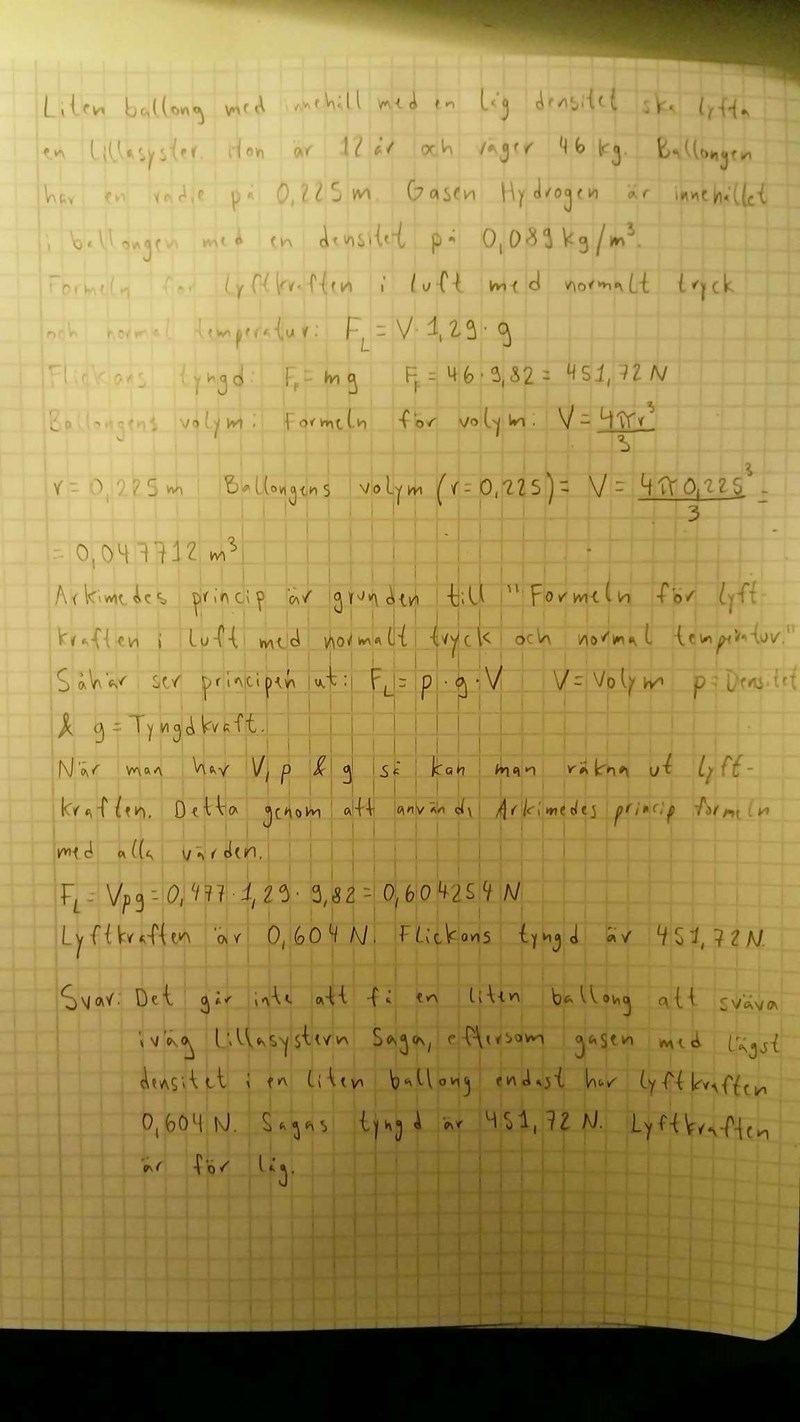 Liten ballong med innehåll med en låg densitet ska lyfta
en lillasyster. Hon är 12 år och väger 46 kg. Ballongen
har en radie på 0,225 m. Gasen Hydrogen är innehållet
i ballongen med en densitet på 0,089 kg/m³.
Formeln för lyftkraften i luft med normalt tryck
och normal temperatur: F_L = V · 1,29 · g
Flickans tyngd: F_F = mg F_F = 46 · 9,82 = 451,72 N
Ballongens volym: Formeln för volym: V = 4πr³/3
r = 0,225 m Ballongens volym (r = 0,225) = V = 4π0,225³/3 =
= 0,047712 m³
Arkimedes princip är grunden till "Formeln för lyft-
kraften i luft med normalt tryck och normal temperatur."
Såhär ser principen ut: F_L = p · g · V V = Volym p = Densitet
& g = Tyngdkraft.
När man har V, p & g så kan man räkna ut lyft-
kraften. Detta genom att använda Arkimedes princip formeln
med alla värden.
F_L = Vpg = 0,477 · 1,29 · 9,82 = 0,604254 N
Lyftkraften är 0,604 N. Flickans tyngd är 451,72 N.
Svar: Det går inte att få en liten ballong att sväva
iväg lillasystern Saga, eftersom gasen med lägst
densitet i en liten ballong endast har lyftkraften
0,604 N. Sagas tyngd är 451,72 N. Lyftkraften
är för låg.